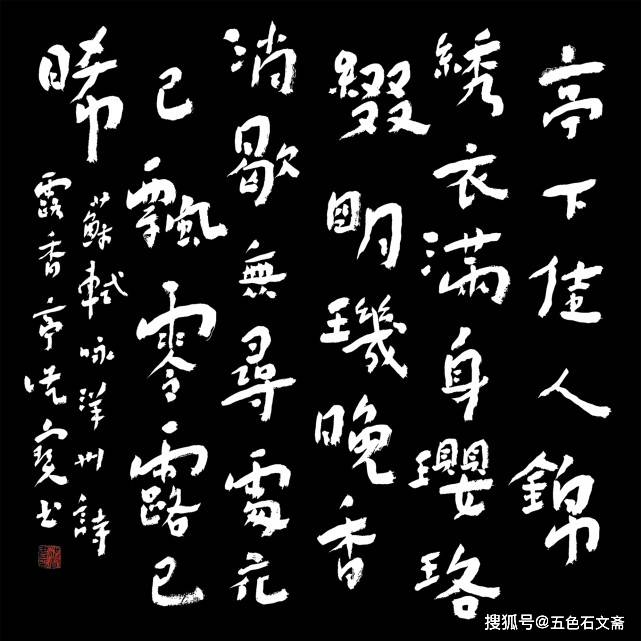 亭下佳人錦
綉衣滿身瓔珞
綴明璣晚香
消歇無尋處花
已飄零露已
晞
蘇軾咏洋州詩
露香亭
搜狐号@五色石文斋